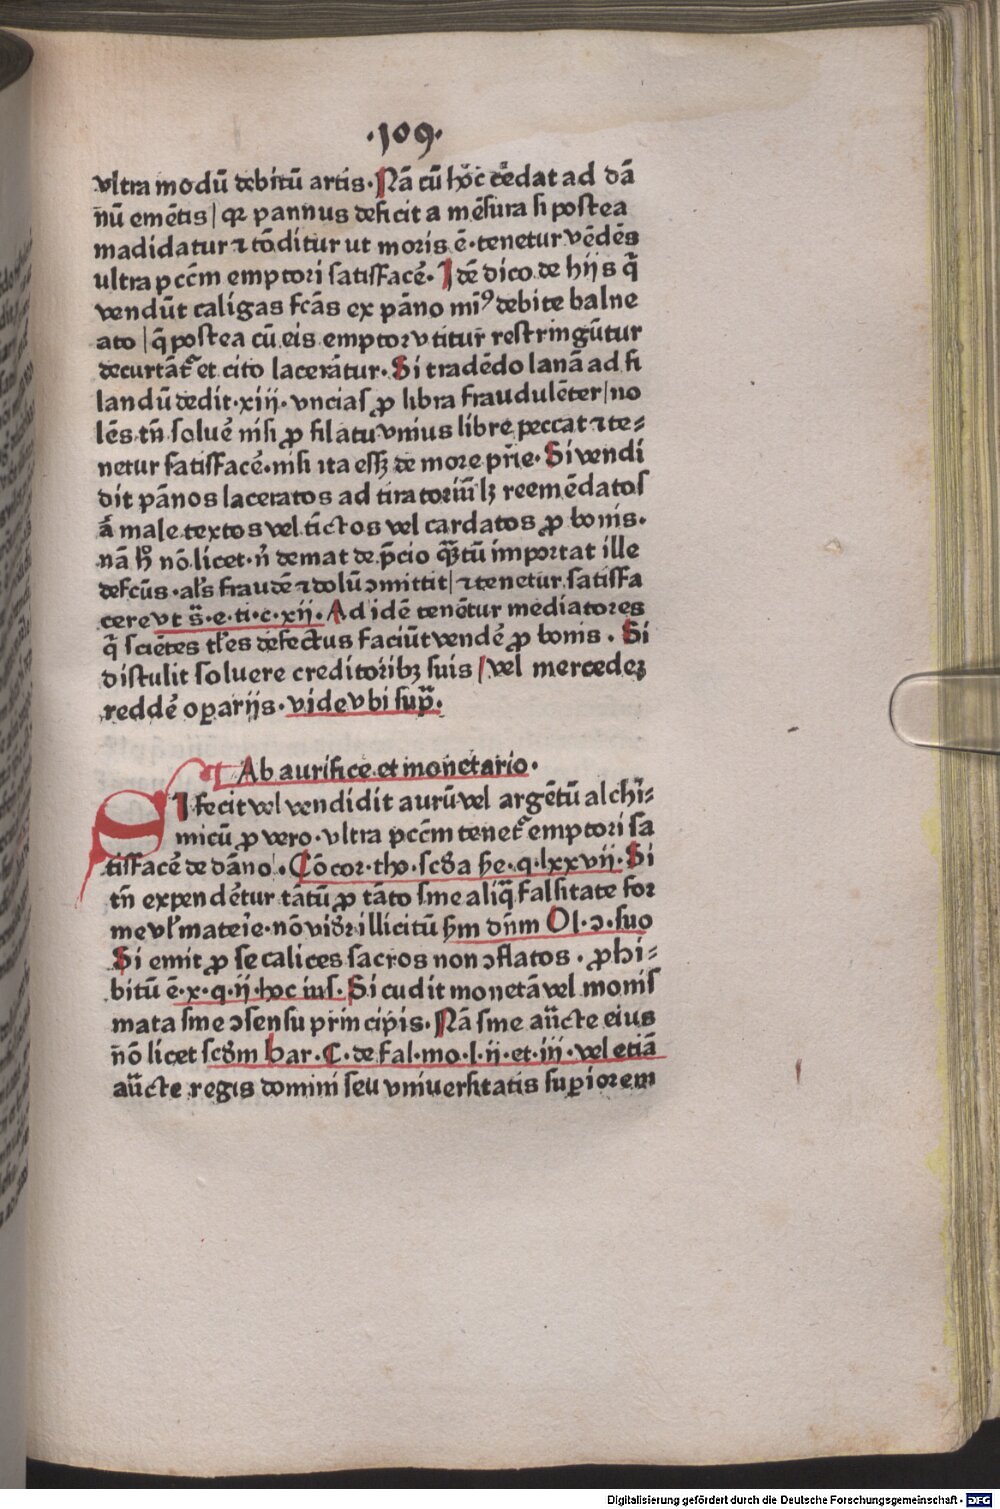 ·109·
vltra modū debitū artis· Nā cū hoc cedat ad dā
nū ementis/ qr pannus deficit a mēsura si postea
madidatur ⁊ tōditur ut moris ē· tenetur vēdēs
ultra pccm̄ emptori satisfacē· Idē dico de hijs q̄
vendūt caligas fcās ex pāno miꝰ debite balne
ato/ q̄ postea cū eis emptor vtitur restringūtur
decurtāt᷑ et cito lacerātur· Si tradēdo lanā ad fi
landū dedit·xiij· vncias ꝓ libra fraudulēter/ no
lēs tn̄ soluē nisi ꝓ filatu vnius libre peccat ⁊ te⸗
netur satisfacē· nisi ita esset de more pr̄ie· Si vendi
dit pānos laceratos ad tiratoriū lꝫ reemēdatos
aut male textos vel tīctos vel cardatos ꝓ bonis·
nā hoc nō licet· n̄ demat de p̄cio quātū importat ille
defcūs· als̄ fraudē ⁊ dolū ↄmittit/ ⁊ tenetur satisfa
cere vt s̄· e· ti· c· xij· Ad idē tenētur mediatores
q̄ sciētes tl̄es defectus faciūt vendē ꝓ bonis· Si
distulit soluere creditoribꝫ suis/ vel mercedeꝫ
reddē oꝑarijs· vide vbi supͣ·
Ab aurifice et monetario·
SI fecit vel vendidit aurū vel argētū alchi⸗
micū ꝓ vero· vltra pccm̄ tenet᷑ emptori sa
tisfacē de dāno· Cōcor· tho· scd̄a sc̄de· q· lxxvij· Si
tn̄ expendētur tātū ꝓ tāto sine aliq̄ falsitate for
me vl̓ mateīe· nō videtur illicitū scd̄m dn̄m Ol· ↄ· suo
Si emit ꝓ se calices sacros non ↄflatos· ꝓhi⸗
bitū ē· x· q· ij· hoc ius· Si cudit monetā vel monis
mata sine ↄsensu principis· Nā sine auc̄te eius
nō licet scd̄m bar· C· de fal· mo· l· ij· et· iij· vel etiā
auc̄te regis domini seu vniuersitatis suꝑiorem
Digitalisierung gefördert durch die Deutsche Forschungsgemeinschaft · DFG